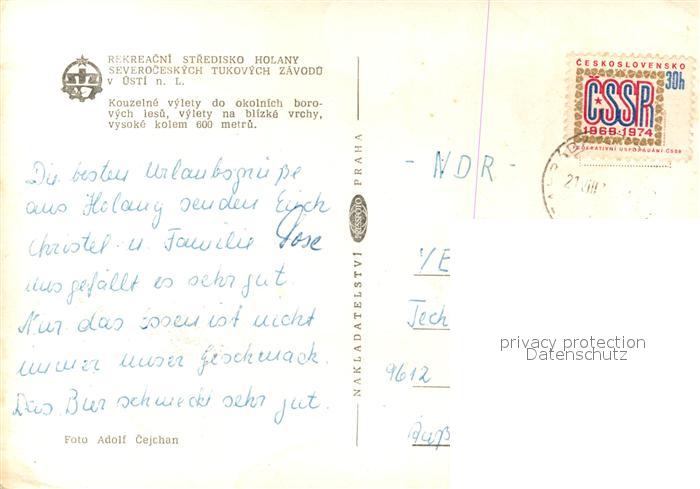 REKREAČNÍ STŘEDISKO HOLANY
SEVEROČESKÝCH TUKOVÝCH ZÁVODŮ
v ÚSTÍ n. L.
Kouzelné výlety do okolních boro-
vých lesů, výlety na blízké vrchy,
vysoké kolem 600 metrů.
Die besten Urlaubsgrüße
aus Holany senden Euch
Christel u. Familie
uns gefällt es sehr gut.
Nur das Essen ist nicht
immer unser Geschmack.
Das Bier schmeckt sehr gut.
Foto Adolf Čejchan
NAKLADATELSTVÍ PRESSFOTO PRAHA
ČESKOSLOVENSKO
30h
ČSSR
1969-1974
FEDERATIVNÍ USPOŘÁDÁNÍ ČSSR
21.VIII.
- NDR -
VE
Tech
9612
privacy protection
Datenschutz